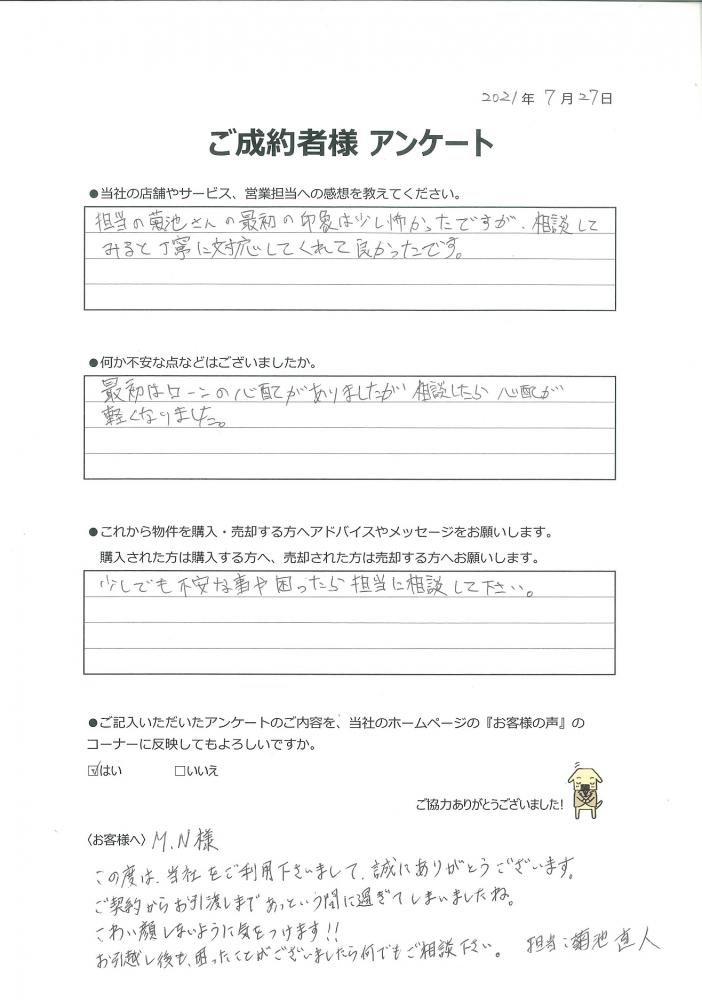 2021年 7月27日
ご成約者様 アンケート
●当社の店舗やサービス、営業担当への感想を教えてください。
担当の菊池さんの最初の印象は少し怖かったですが、相談して
みると丁寧に対応してくれて良かったです。
●何か不安な点などはございましたか。
最初はローンの心配がありましたが相談したら心配が
軽くなりました。
●これから物件を購入・売却する方へアドバイスやメッセージをお願いします。
購入された方は購入する方へ、売却された方は売却する方へお願いします。
少しでも不安な事や困ったら担当に相談して下さい。
●ご記入いただいたアンケートのご内容を、当社のホームページの『お客様の声』の
コーナーに反映してもよろしいですか。
☑はい □いいえ
ご協力ありがとうございました!
〈お客様へ〉 M.N様
この度は、当社をご利用下さいまして、誠にありがとうございます。
ご契約からお引渡しまであっという間に過ぎてしまいましたね。
こわい顔しないように気をつけます!!
お引越し後も、困ったことがございましたら何でもご相談下さい。 担当:菊池直人